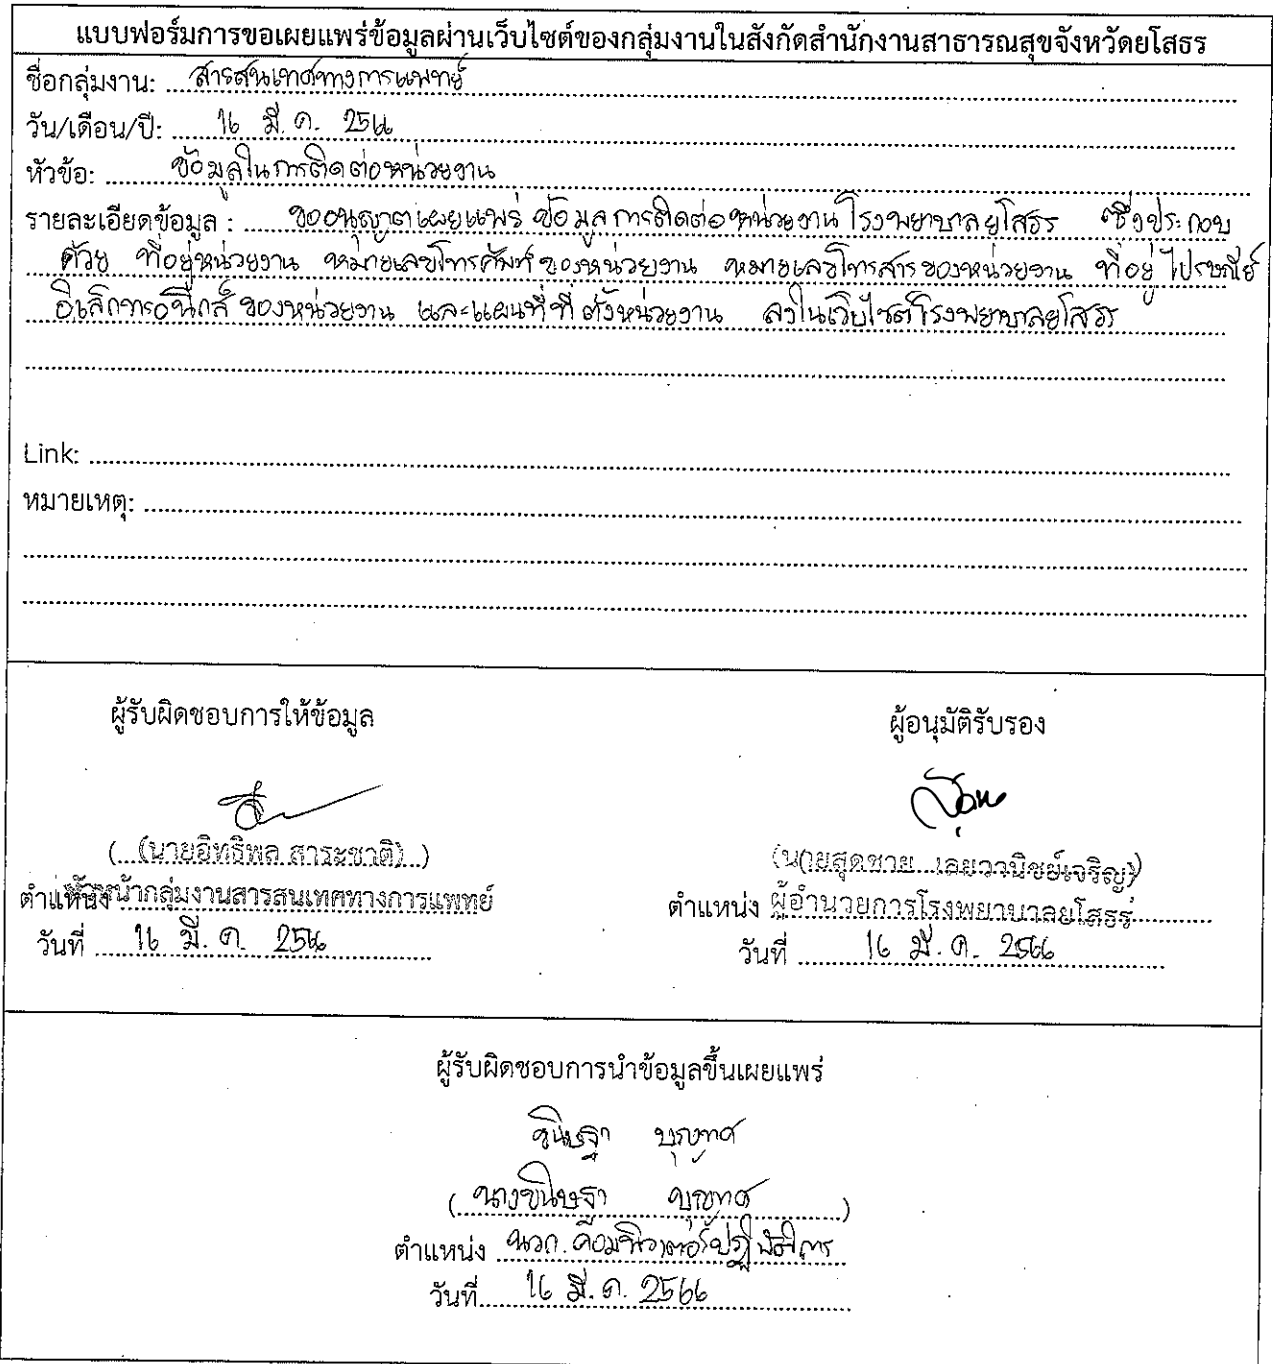 แบบฟอร์มการขอเผยแพร่ข้อมูลผ่านเว็บไซต์ของกลุ่มงานในสังกัดสำนักงานสาธารณสุขจังหวัดยโสธร
ชื่อกลุ่มงาน: สารสนเทศทางการแพทย์
วัน/เดือน/ปี: 16 มี.ค. 2566
หัวข้อ: ข้อมูลในการติดต่อหน่วยงาน
รายละเอียดข้อมูล : ขออนุญาตเผยแพร่ ข้อมูลการติดต่อหน่วยงานโรงพยาบาลยโสธร ซึ่งประกอบ
ด้วย ที่อยู่หน่วยงาน หมายเลขโทรศัพท์ของหน่วยงาน หมายเลขโทรสารของหน่วยงาน ที่อยู่ไปรษณีย์
อิเล็กทรอนิกส์ของหน่วยงาน และแผนที่ที่ตั้งหน่วยงาน ลงในเว็บไซต์โรงพยาบาลยโสธร
Link:
หมายเหตุ:
ผู้รับผิดชอบการให้ข้อมูล
(นายอิทธิพล สาระชาติ)
ตำแหน่ง หัวหน้ากลุ่มงานสารสนเทศทางการแพทย์
วันที่ 16 มี.ค. 2566
ผู้อนุมัติรับรอง
(นายสุดชาย เลยวานิชย์เจริญ)
ตำแหน่ง ผู้อำนวยการโรงพยาบาลยโสธร
วันที่ 16 มี.ค. 2566
ผู้รับผิดชอบการนำข้อมูลขึ้นเผยแพร่
ขนิษฐา บุญทศ
(นางขนิษฐา บุญทศ)
ตำแหน่ง นวก.คอมพิวเตอร์ปฏิบัติการ
วันที่ 16 มี.ค. 2566